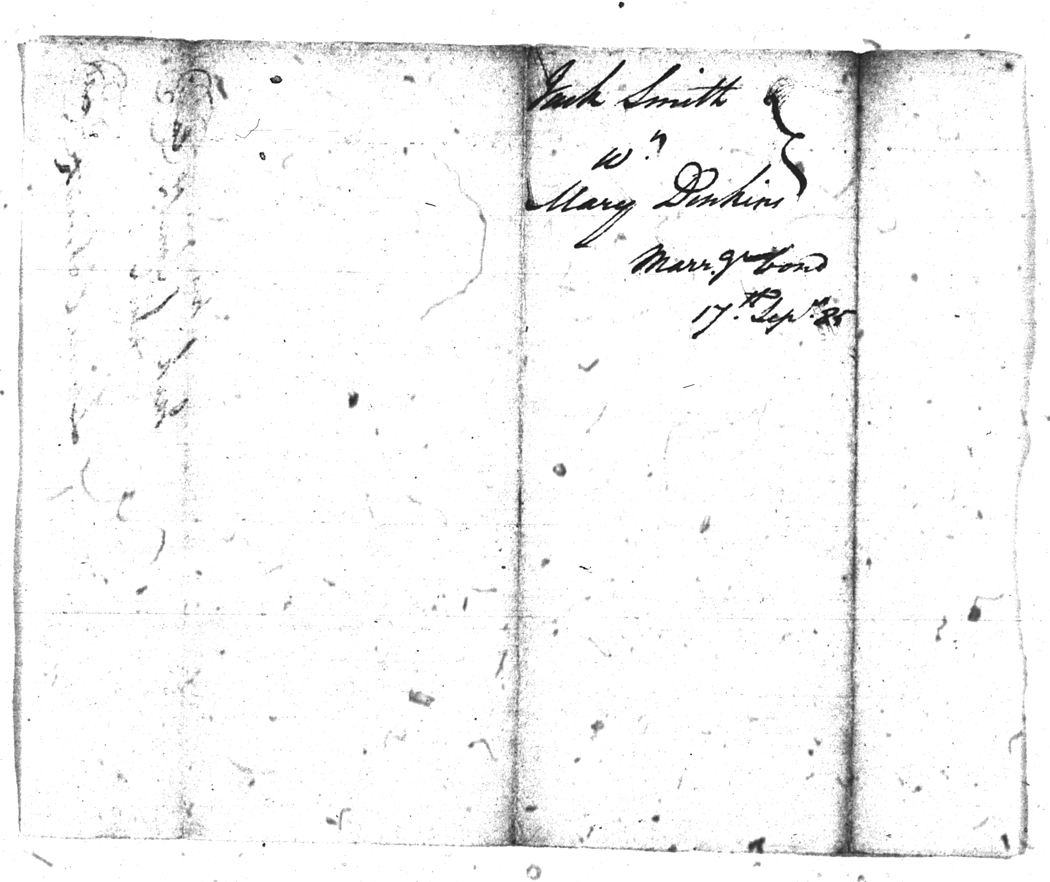 Jack Smith
wn
Mary Denkins
Marrge bond
17th Sepr 85